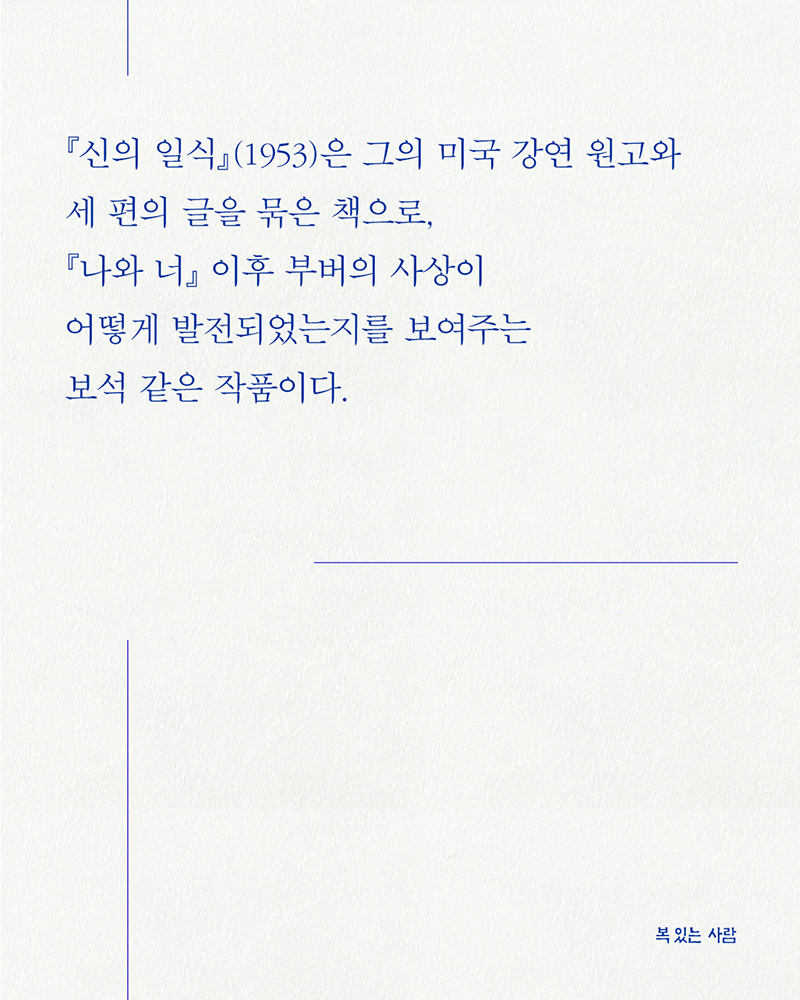 『신의 일식』(1953)은 그의 미국 강연 원고와
세 편의 글을 묶은 책으로,
『나와 너』 이후 부버의 사상이
어떻게 발전되었는지를 보여주는
보석 같은 작품이다.
복 있는 사람